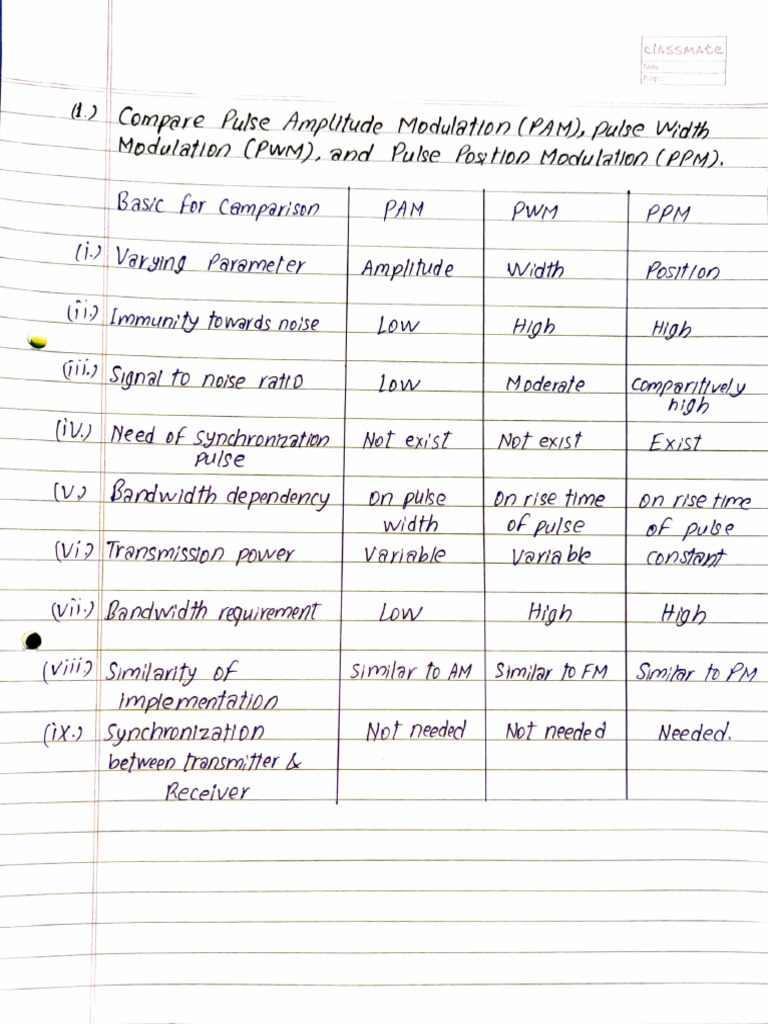 classmate
Date :
Page :
(1.) Compare Pulse Amplitude Modulation (PAM), Pulse Width
Modulation (PWM), and Pulse Position Modulation (PPM).
Basic for Comparison PAM PWM PPM
(i.) Varying Parameter Amplitude Width Position
(ii.) Immunity towards noise Low High High
(iii.) Signal to noise ratio Low Moderate Comparitively
high
(iv.) Need of synchronization Not exist Not exist Exist
pulse
(v.) Bandwidth dependency on pulse on rise time on rise time
width of pulse of pulse
(vi.) Transmission power variable variable constant
(vii.) Bandwidth requirement Low High High
(viii.) Similarity of Similar to AM Similar to FM Similar to PM
implementation
(ix.) Synchronization Not needed Not needed Needed.
between transmitter &
Receiver